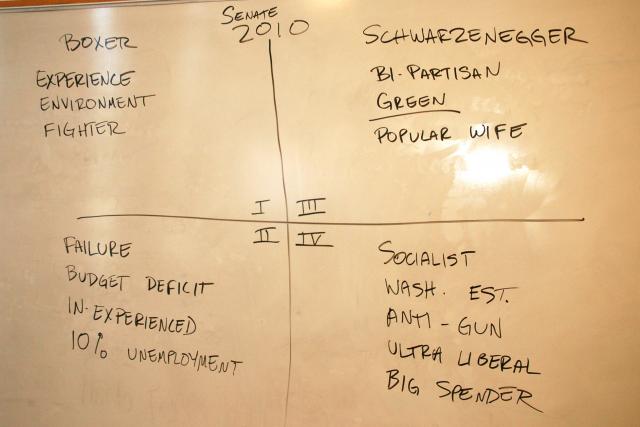 SENATE
2010
BOXER
EXPERIENCE
ENVIRONMENT
FIGHTER
I
SCHWARZENEGGER
BI-PARTISAN
GREEN
POPULAR WIFE
III
II
FAILURE
BUDGET DEFICIT
IN-EXPERIENCED
10% UNEMPLOYMENT
IV
SOCIALIST
WASH. EST.
ANTI-GUN
ULTRA LIBERAL
BIG SPENDER